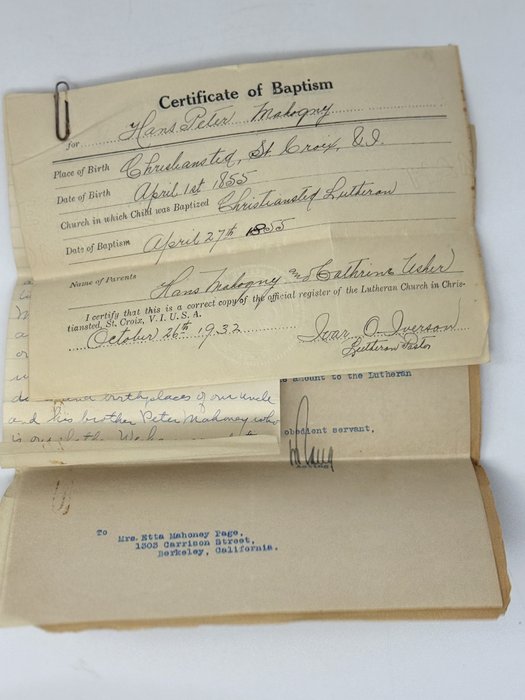 Certificate of Baptism
for Hans Peter Mahogny
Place of Birth Christiansted, St. Croix, V.I.
Date of Birth April 1st 1855
Church in which Child was Baptized Christiansted Lutheran
Date of Baptism April 27th 1855
Name of Parents Hans Mahogny and Cathrine Usher
I certify that this is a correct copy of the official register of the Lutheran Church in Chris-
tiansted, St. Croix, V. I. U. S. A.
October 26th 1932 Ivar O. Iverson
Lutheran Pastor
amount to the Lutheran
birthplaces of our uncle
and his brother Peter Mahoney who
is our
obedient servant,
To
Mrs. Etta Mahoney Page,
1303 Carrison Street,
Berkeley, California.